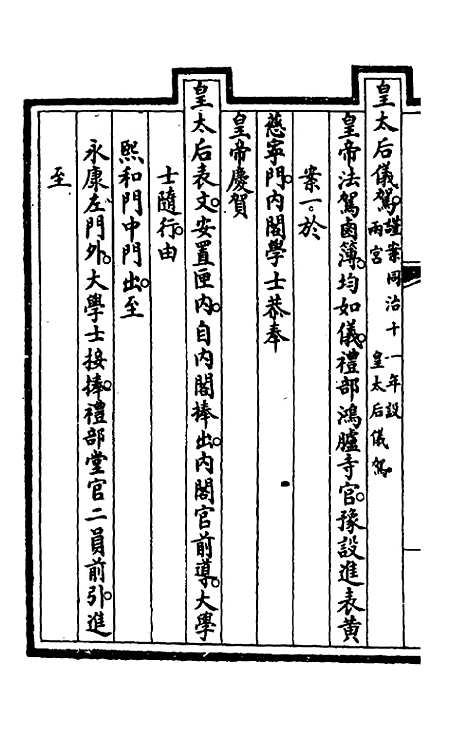 皇太后儀駕。謹案同治十一年設兩宮 皇太后儀駕。
皇帝法駕鹵簿。均如儀。禮部鴻臚寺官。豫設進表黃
案一。於
慈寧門。內閣學士恭奉
皇帝慶賀
皇太后表文。安置匣內。自內閣捧出。內閣官前導。大學
士隨行。由
熙和門中門出。至
永康左門外。大學士接捧。禮部堂官二員前引。進
至